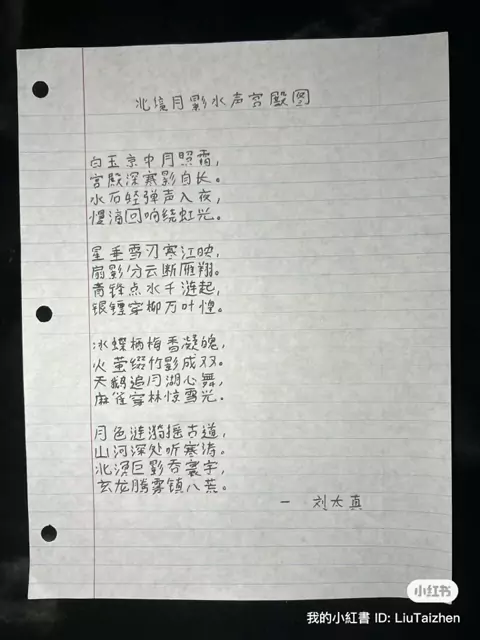 北境月影水声宫殿图
白玉京中月照霜，
宫殿深寒影自长。
水石轻弹声入夜，
慢滴回响绕虹光。
星垂雪刃寒江映，
扇影分云断雁翔。
青锋点水千涟起，
银镖穿柳万叶惶。
冰蝶栖梅香凝魄，
火萤缀竹影成双。
天鹅追月湖心舞，
麻雀穿林惊雪光。
月色涟漪摇古道，
山河深处听寒涛。
北溟巨影吞寰宇，
玄龙腾雾镇八荒。
— 刘太真
小红书
我的小紅書 ID: LiuTaizhen